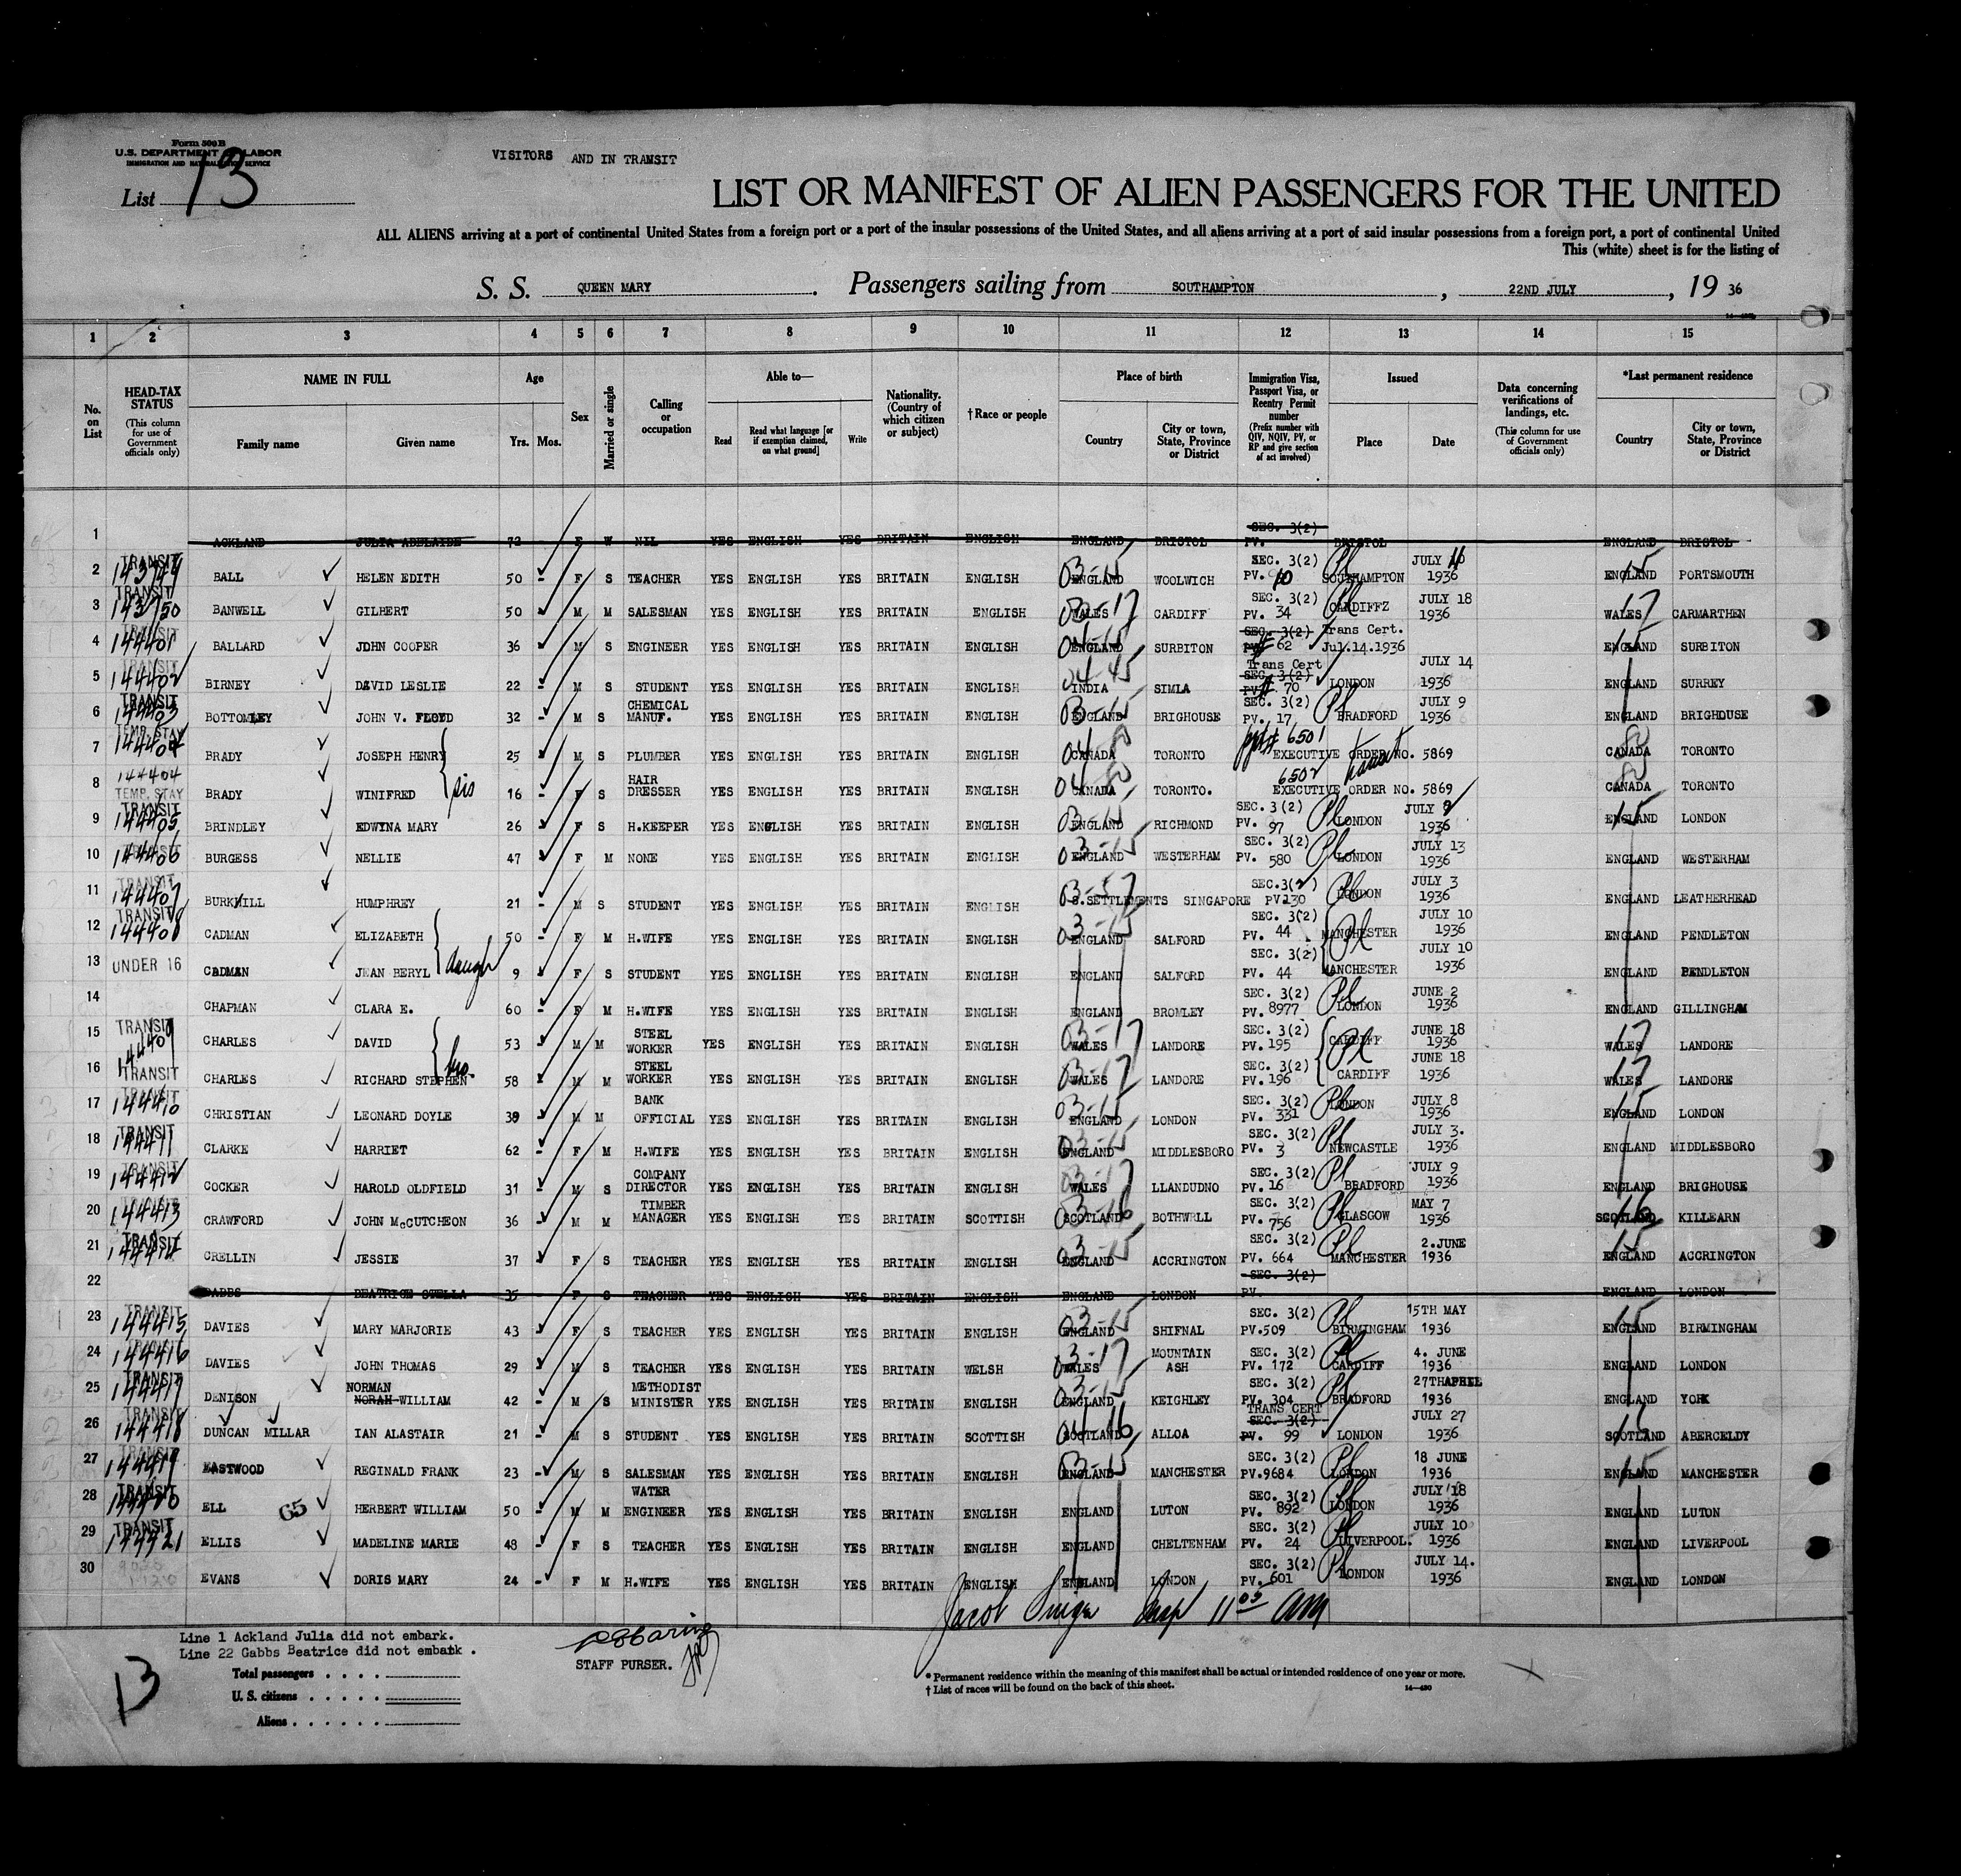 Form 500 B
U.S. DEPARTMENT OF LABOR
IMMIGRATION AND NATURALIZATION SERVICE
List 13
VISITORS AND IN TRANSIT
LIST OR MANIFEST OF ALIEN PASSENGERS FOR THE UNITED
ALL ALIENS arriving at a port of continental United States from a foreign port or a port of the insular possessions of the United States, and all aliens arriving at a port of said insular possessions from a foreign port, a port of continental United
This (white) sheet is for the listing of
S. S. QUEEN MARY . Passengers sailing from SOUTHAMPTON , 22ND JULY , 19 36
1 2 3 4 5 6 7 8 9 10 11 12 13 14 15
No. on List
HEAD-TAX STATUS (This column for use of Government officials only)
NAME IN FULL Family name Given name
Age Yrs. Mos.
Sex
Married or single
Calling or occupation
Able to— Read Read what language [or if exemption claimed, on what ground] Write
Nationality. (Country of which citizen or subject)
†Race or people
Place of birth Country City or town, State, Province or District
Immigration Visa, Passport Visa, or Reentry Permit number (Prefix number with QIV, NQIV, PV, or RP and give section of act involved)
Issued Place Date
Data concerning verifications of landings, etc. (This column for use of Government officials only)
*Last permanent residence Country City or town, State, Province or District
1 ACKLAND JULIA ADELAIDE 72 F W NIL YES ENGLISH YES BRITAIN ENGLISH ENGLAND BRISTOL SEC. 3(2) PV. BRISTOL ENGLAND BRISTOL
2 TRANSIT 143749 BALL HELEN EDITH 50 - F S TEACHER YES ENGLISH YES BRITAIN ENGLISH ENGLAND 03-15 WOOLWICH SEC. 3(2) PV. 10 SOUTHAMPTON JULY 1936 ENGLAND 15 PORTSMOUTH
3 TRANSIT 143750 BANWELL GILBERT 50 M M SALESMAN YES ENGLISH YES BRITAIN ENGLISH WALES 03-17 CARDIFF SEC. 3(2) PV. 34 CARDIFFZ JULY 18 1936 WALES 17 CARMARTHEN
4 TRANSIT 144401 BALLARD JOHN COOPER 36 M S ENGINEER YES ENGLISH YES BRITAIN ENGLISH ENGLAND 04-15 SURBITON SEC. 3(2) PV# 62 Trans Cert. Jul.14.1936 ENGLAND 15 SURBITON
5 TRANSIT 144402 BIRNEY DAVID LESLIE 22 - M S STUDENT YES ENGLISH YES BRITAIN ENGLISH INDIA 04-45 SIMLA Trans Cert SEC. 3(2) PV# 70 LONDON JULY 14 1936 ENGLAND SURREY
6 TRANSIT 144403 BOTTOMLEY JOHN V. FLOYD 32 - M S CHEMICAL MANUF. YES ENGLISH YES BRITAIN ENGLISH ENGLAND 03-15 BRIGHOUSE SEC. 3(2) PV. 17 BRADFORD JULY 9 1936 ENGLAND BRIGHOUSE
7 TEMP. STAY 144404 BRADY JOSEPH HENRY 25 M S PLUMBER YES ENGLISH YES BRITAIN ENGLISH CANADA 04-80 TORONTO ppt# 6501 EXECUTIVE ORDER NO. 5869 CANADA 80 TORONTO
8 144404 TEMP. STAY BRADY WINIFRED sis 16 - F S HAIR DRESSER YES ENGLISH YES BRITAIN ENGLISH CANADA 04-80 TORONTO. 6502 EXECUTIVE ORDER NO. 5869 CANADA 80 TORONTO
9 TRANSIT 144405 BRINDLEY EDWYNA MARY 26 F S H.KEEPER YES ENGLISH YES BRITAIN ENGLISH ENGLAND 03-15 RICHMOND SEC. 3(2) PV. 97 LONDON JULY 9 1936 ENGLAND 15 LONDON
10 TRANSIT 144406 BURGESS NELLIE 47 F M NONE YES ENGLISH YES BRITAIN ENGLISH ENGLAND 03-15 WESTERHAM SEC. 3(2) PV. 580 LONDON JULY 13 1936 ENGLAND WESTERHAM
11 TRANSIT 144407 BURKHILL HUMPHREY 21 - M S STUDENT YES ENGLISH YES BRITAIN ENGLISH S.SETTLEMENTS 03-57 SINGAPORE SEC.3(2) PV.130 LONDON JULY 3 1936 ENGLAND LEATHERHEAD
12 TRANSIT 144408 CADMAN ELIZABETH 50 - F M H.WIFE YES ENGLISH YES BRITAIN ENGLISH ENGLAND 03-15 SALFORD SEC. 3(2) PV. 44 MANCHESTER JULY 10 1936 ENGLAND PENDLETON
13 UNDER 16 CADMAN JEAN BERYL daugh 9 F S STUDENT YES ENGLISH YES BRITAIN ENGLISH ENGLAND SALFORD SEC. 3(2) PV. 44 MANCHESTER JULY 10 1936 ENGLAND PENDLETON
14 CHAPMAN CLARA E. 60 - F M H.WIFE YES ENGLISH YES BRITAIN ENGLISH ENGLAND BROMLEY SEC. 3(2) PV. 8977 LONDON JUNE 2 1936 ENGLAND GILLINGHAM
15 TRANSIT 144409 CHARLES DAVID 53 - M M STEEL WORKER YES ENGLISH YES BRITAIN ENGLISH WALES 03-17 LANDORE SEC. 3(2) PV. 195 CARDIFF JUNE 18 1936 WALES 17 LANDORE
16 TRANSIT CHARLES RICHARD STEPHEN bro. 58 M M STEEL WORKER YES ENGLISH YES BRITAIN ENGLISH WALES 03-17 LANDORE SEC. 3(2) PV. 196 CARDIFF JUNE 18 1936 WALES 17 LANDORE
17 TRANSIT 144410 CHRISTIAN LEONARD DOYLE 39 M M BANK OFFICIAL YES ENGLISH YES BRITAIN ENGLISH ENGLAND 03-15 LONDON SEC. 3(2) PV. 331 LONDON JULY 8 1936 ENGLAND 15 LONDON
18 TRANSIT 144411 CLARKE HARRIET 62 - F M H.WIFE YES ENGLISH YES BRITAIN ENGLISH ENGLAND 03-15 MIDDLESBORO SEC. 3(2) PV. 3 NEWCASTLE JULY 3. 1936 ENGLAND MIDDLESBORO
19 TRANSIT 144412 COCKER HAROLD OLDFIELD 31 - M S COMPANY DIRECTOR YES ENGLISH YES BRITAIN ENGLISH WALES 03-17 LLANDUDNO SEC. 3(2) PV. 16 BRADFORD JULY 9 1936 ENGLAND BRIGHOUSE
20 TRANSIT 144413 CRAWFORD JOHN McCUTCHEON 36 M M TIMBER MANAGER YES ENGLISH YES BRITAIN SCOTTISH SCOTLAND 03-16 BOTHWRLL SEC. 3(2) PV. 756 GLASGOW MAY 7 1936 SCOTLAND 16 KILLEARN
21 TRANSIT 144414 CRELLIN JESSIE 37 F S TEACHER YES ENGLISH YES BRITAIN ENGLISH ENGLAND 03-15 ACCRINGTON SEC. 3(2) PV. 664 MANCHESTER 2.JUNE 1936 ENGLAND 15 ACCRINGTON
22 DABBS BEATRICE STELLA 35 F S TEACHER YES ENGLISH YES BRITAIN ENGLISH ENGLAND LONDON SEC. 3(2) PV. ENGLAND LONDON
23 TRANSIT 144415 DAVIES MARY MARJORIE 43 F S TEACHER YES ENGLISH YES BRITAIN ENGLISH ENGLAND 03-15 SHIFNAL SEC. 3(2) PV.509 BIRMINGHAM 15TH MAY 1936 ENGLAND 15 BIRMINGHAM
24 TRANSIT 144416 DAVIES JOHN THOMAS 29 M S TEACHER YES ENGLISH YES BRITAIN WELSH WALES 03-17 MOUNTAIN ASH SEC. 3(2) PV. 172 CARDIFF 4. JUNE 1936 ENGLAND LONDON
25 TRANSIT 144417 DENISON NORMAN NORAH WILLIAM 42 - M S METHODIST MINISTER YES ENGLISH YES BRITAIN ENGLISH ENGLAND 03-15 KEIGHLEY SEC. 3(2) PV. 304 BRADFORD 27THAPRIL 1936 ENGLAND YORK
26 TRANSIT 144418 DUNCAN MILLAR IAN ALASTAIR 21 - M S STUDENT YES ENGLISH YES BRITAIN SCOTTISH SCOTLAND 04-16 ALLOA TRANS CERT SEC. 3(2) PV. 99 LONDON JULY 27 1936 SCOTLAND 16 ABERCELDY
27 TRANSIT 144419 EASTWOOD REGINALD FRANK 23 - M S SALESMAN YES ENGLISH YES BRITAIN ENGLISH ENGLAND 03-15 MANCHESTER SEC. 3(2) PV.9684 LONDON 18 JUNE 1936 ENGLAND 15 MANCHESTER
28 TRANSIT 144420 ELL 65 HERBERT WILLIAM 50 - M M WATER ENGINEER YES ENGLISH YES BRITAIN ENGLISH ENGLAND LUTON SEC. 3(2) PV. 892 LONDON JULY 18 1936 ENGLAND LUTON
29 TRANSIT 144421 ELLIS MADELINE MARIE 48 - F S TEACHER YES ENGLISH YES BRITAIN ENGLISH ENGLAND CHELTENHAM SEC. 3(2) PV. 24 LIVERPOOL. JULY 10 1936 ENGLAND LIVERPOOL
30 EVANS DORIS MARY 24 - F M H.WIFE YES ENGLISH YES BRITAIN ENGLISH ENGLAND LONDON SEC. 3(2) PV. 601 LONDON JULY 14. 1936 ENGLAND LONDON
Jacob Insp 11 05 AM
Line 1 Ackland Julia did not embark.
Line 22 Gabbs Beatrice did not embark .
STAFF PURSER.
13
Total passengers . . . .
U. S. citizens . . . . .
Aliens . . . . . .
* Permanent residence within the meaning of this manifest shall be actual or intended residence of one year or more.
† List of races will be found on the back of this sheet.
14—430